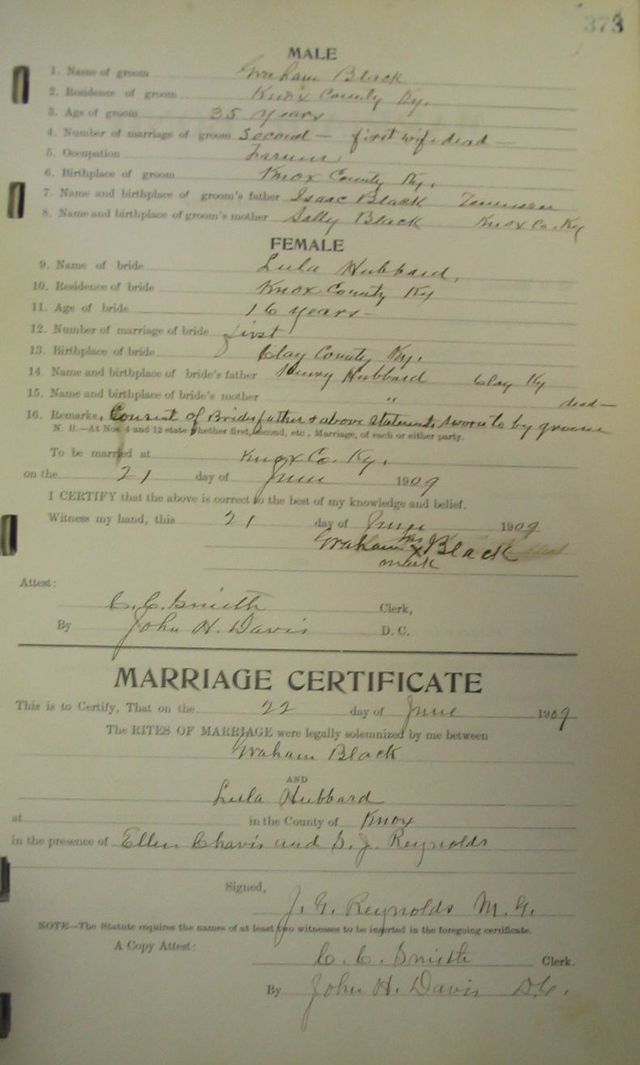 373
MALE
1. Name of groom Graham Black
2. Residence of groom Knox County Ky.
3. Age of groom 35 years
4. Number of marriage of groom Second — first wife dead —
5. Occupation Farmer
6. Birthplace of groom Knox County Ky.
7. Name and birthplace of groom's father Isaac Black Tennessee
8. Name and birthplace of groom's mother Sally Black Knox Co. Ky
FEMALE
9. Name of bride Lula Hubbard.
10. Residence of bride Knox County Ky
11. Age of bride 16 years —
12. Number of marriage of bride first
13. Birthplace of bride Clay County Ky.
14. Name and birthplace of bride's father Henry Hubbard Clay Ky
15. Name and birthplace of bride's mother " dead —
16. Remarks. Consent of Brides father & above statements sworn to by groom
N. B.—At Nos. 4 and 12 state whether first, second, etc., Marriage, of each or either party.
To be married at Knox Co. Ky.
on the 21 day of June 1909
I CERTIFY that the above is correct to the best of my knowledge and belief.
Witness my hand, this 21 day of June 1909
Graham his x Black
mark
Attest:
C. C. Smith Clerk,
By John H. Davis D. C.
MARRIAGE CERTIFICATE
This is to Certify, That on the 22 day of June 1909
The RITES OF MARRIAGE were legally solemnized by me between
Graham Black
AND
Lula Hubbard
at in the County of Knox
in the presence of Ellen Chavis and G. J. Reynolds
Signed,
J. G. Reynolds M. G.
NOTE—The Statute requires the names of at least two witnesses to be inserted in the foregoing certificate.
A Copy Attest:
C. C. Smith Clerk.
By John H. Davis D.C.